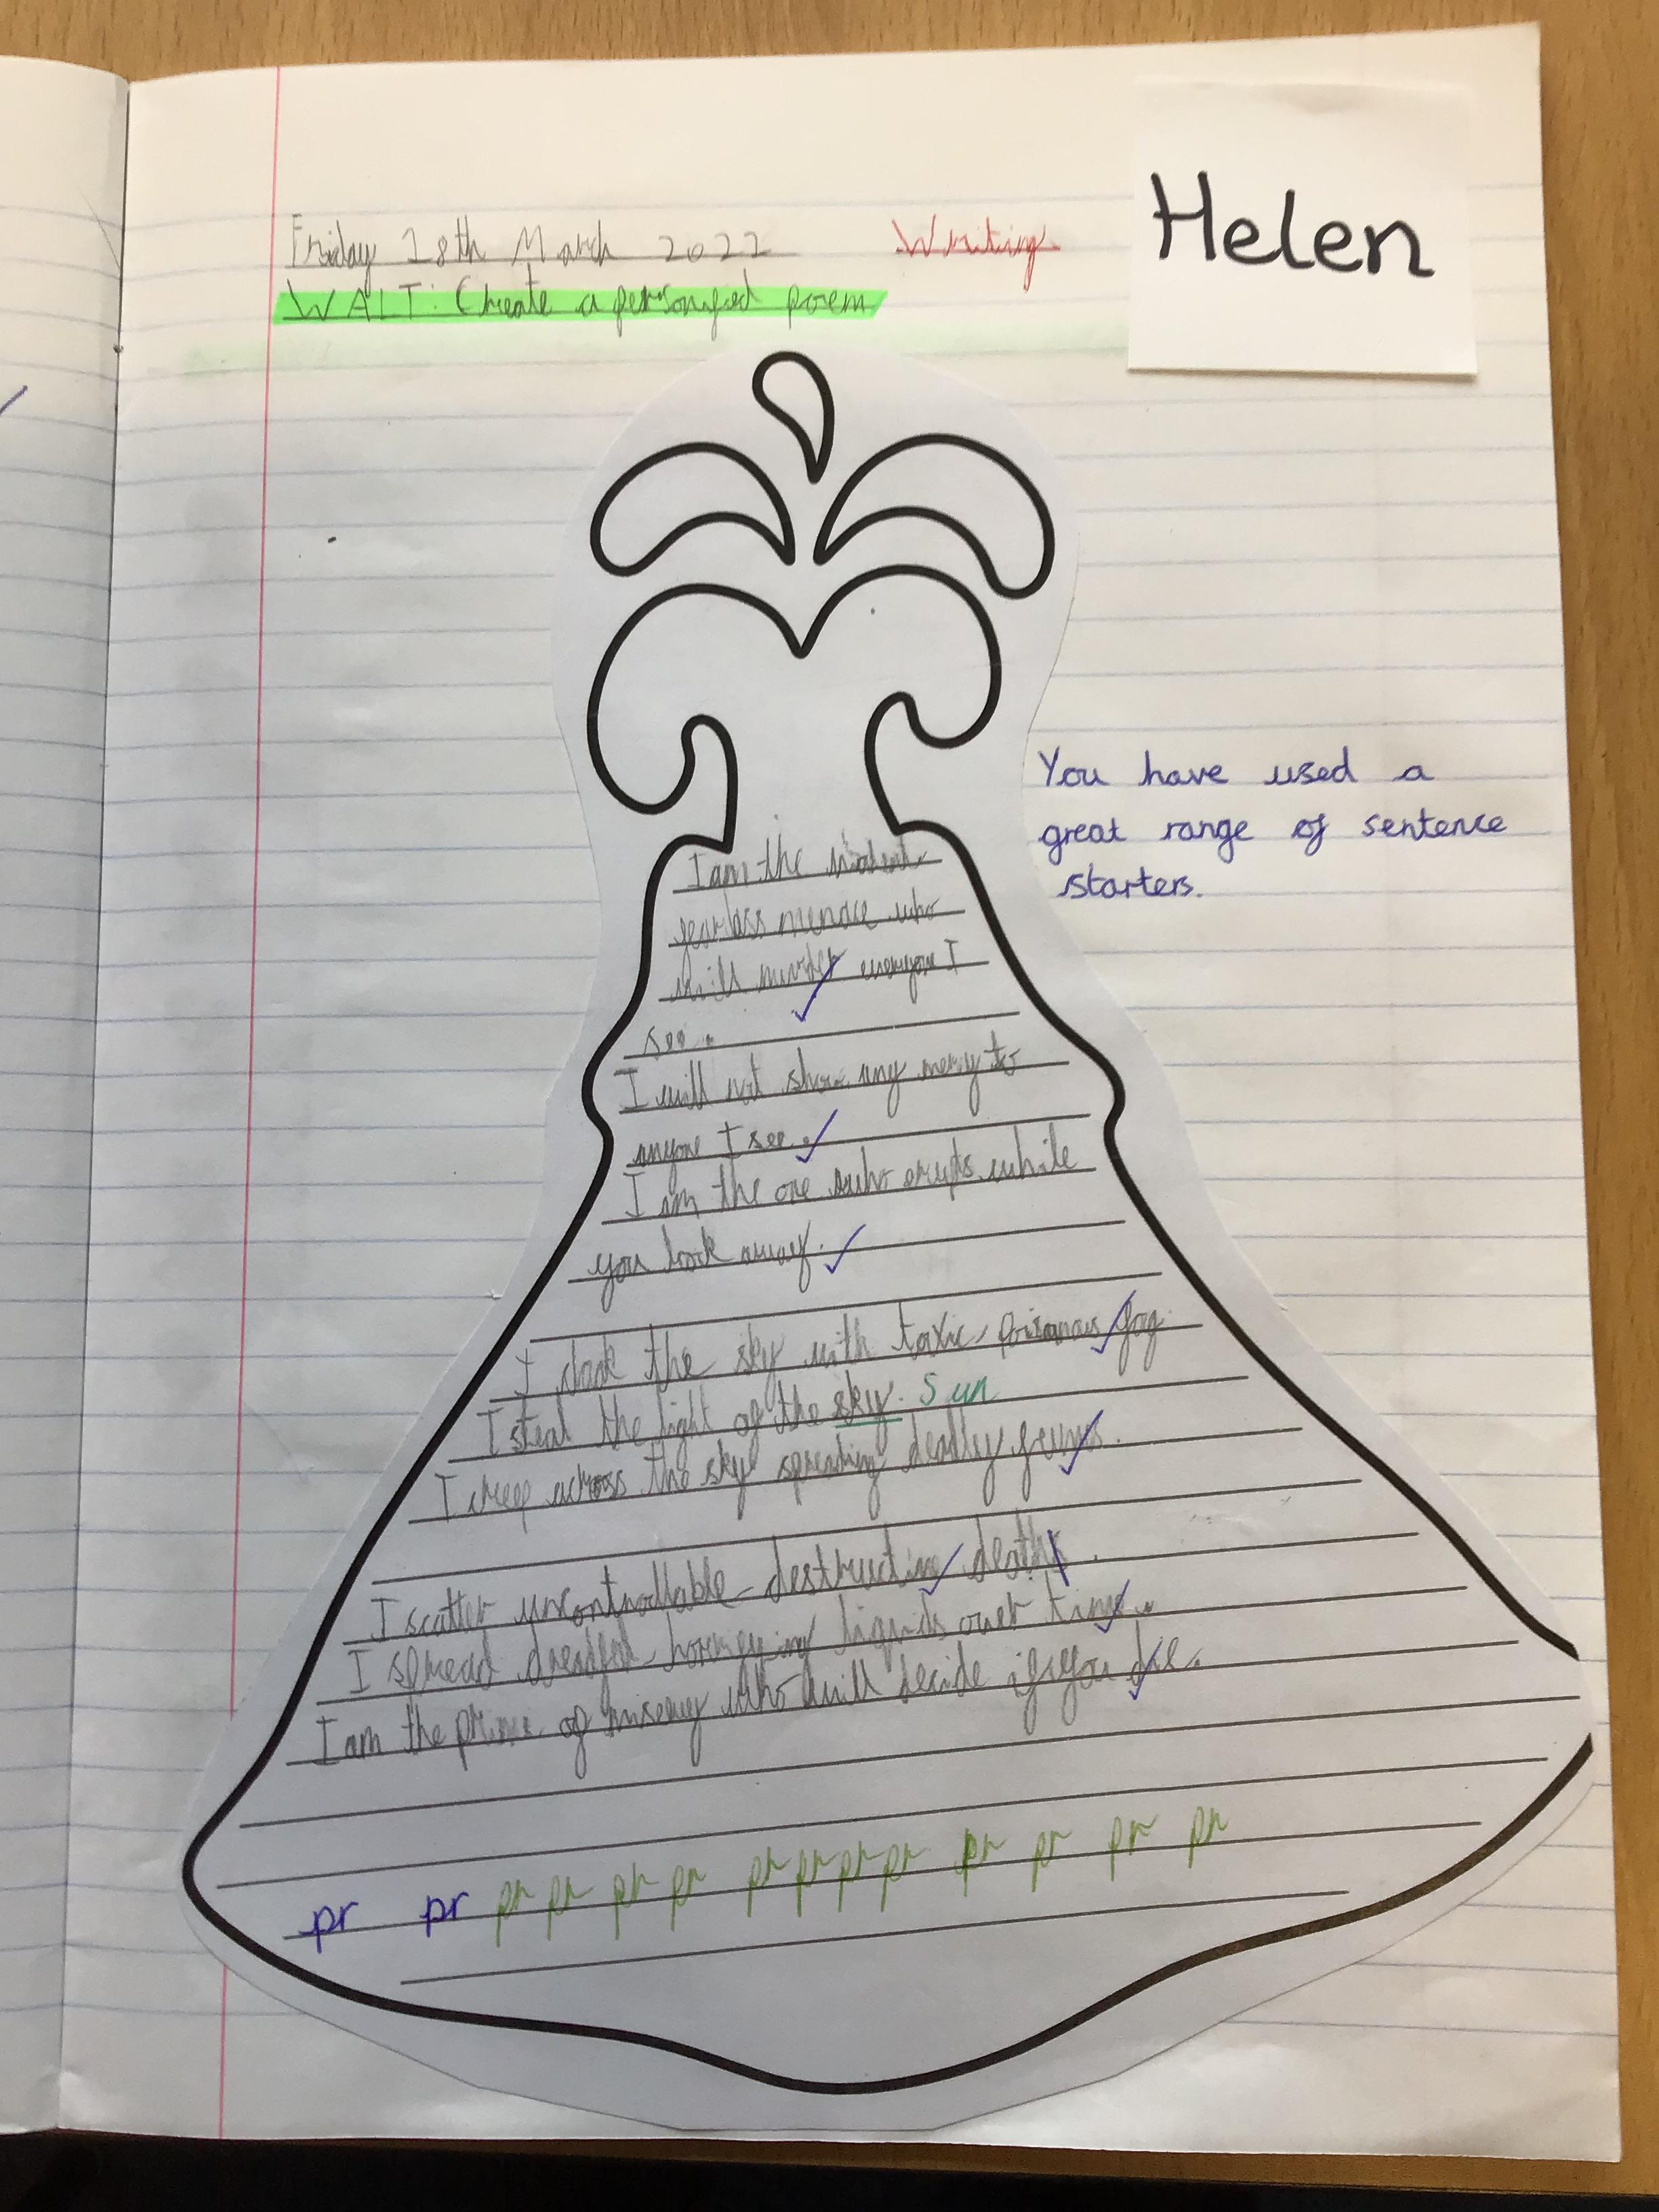 Friday 18th March 2022 Writing
Helen
WALT: Create a personified poem
You have used a
great range of sentence
starters.
I am the violent
fearless menace who
will murder everyone I
see.
I will not show any mercy to
anyone I see.
I am the one who erupts while
you look away.
I cloak the sky with toxic, poisonous fog.
I steal the light of the sky. Sun
I creep across the sky spreading deadly
I scatter uncontrollable destructive death
I spread dreadful horrifying liquids over
I am the prince of misery who will decide if you die.
pr pr pr pr pr pr pr pr pr pr pr pr pr pr